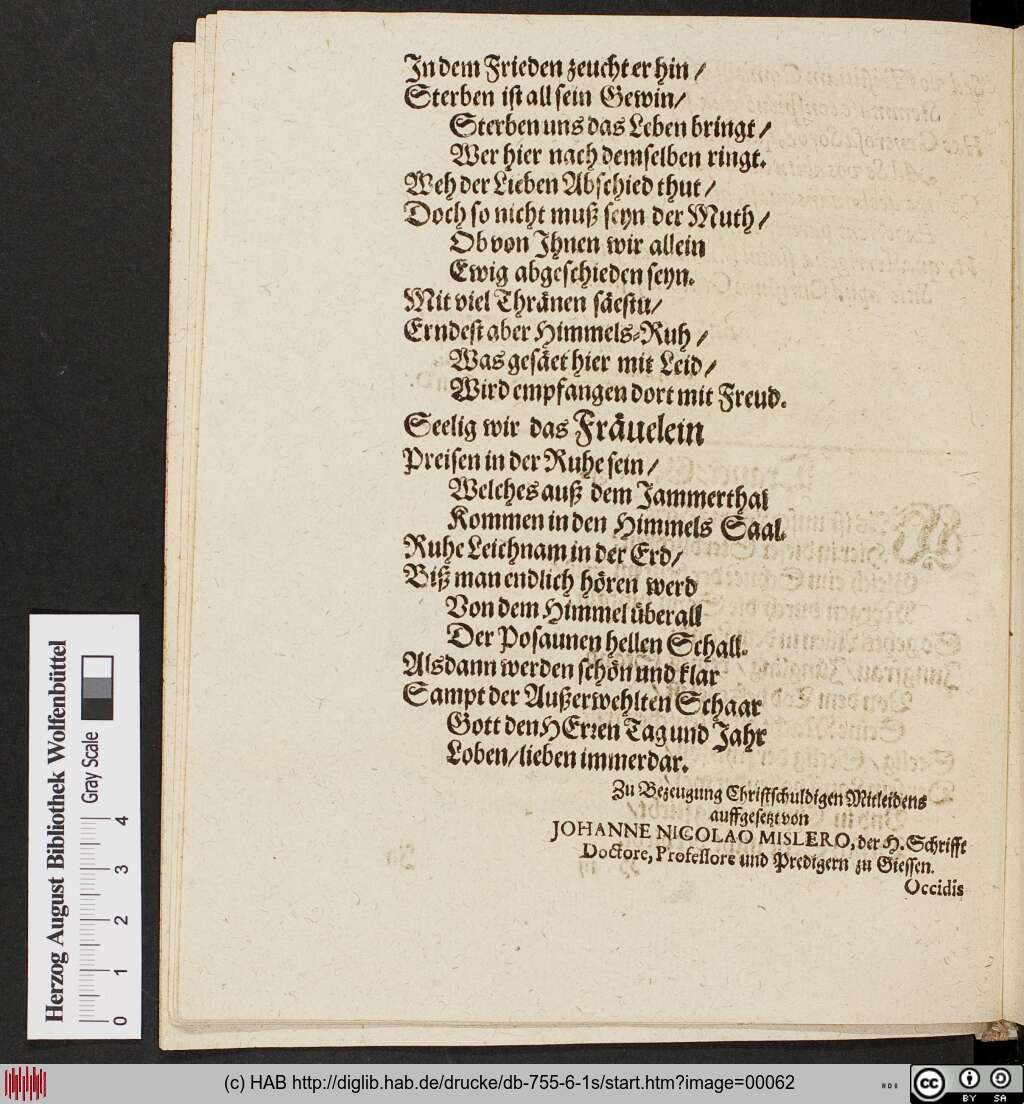 In dem Frieden zeucht er hin /
Sterben ist all sein Gewin /
Sterben uns das Leben bringt /
Wer hier nach demselben ringt.
Weh der Lieben Abschied thut /
Doch so nicht muß seyn der Muth /
Ob von Ihnen wir allein
Ewig abgeschieden seyn.
Mit viel Thränen säestu /
Erndest aber Himmels-Ruh /
Was gesäet hier mit Leid /
Wird empfangen dort mit Freud.
Seelig wir das Fräuelein
Preisen in der Ruhe sein /
Welches auß dem Jammerthal
Kommen in den Himmels Saal.
Ruhe Leichnam in der Erd /
Biß man endlich hören werd
Von dem Himmel überall
Der Posaunen hellen Schall.
Alsdann werden schön und klar
Sampt der Außerwehlten Schaar
Gott den HErren Tag und Jahr
Loben / lieben immerdar.
Zu Bezeugung Christschuldigen Mitleidens
auffgesetzt von
JOHANNE NICOLAO MISLERO, der H. Schrifft
Doctore, Professore und Predigern zu Giessen.
Occidis
Herzog August Bibliothek Wolfenbüttel
Gray Scale
0 1 2 3 4
(c) HAB http://diglib.hab.de/drucke/db-755-6-1s/start.htm?image=00062
cc BY SA